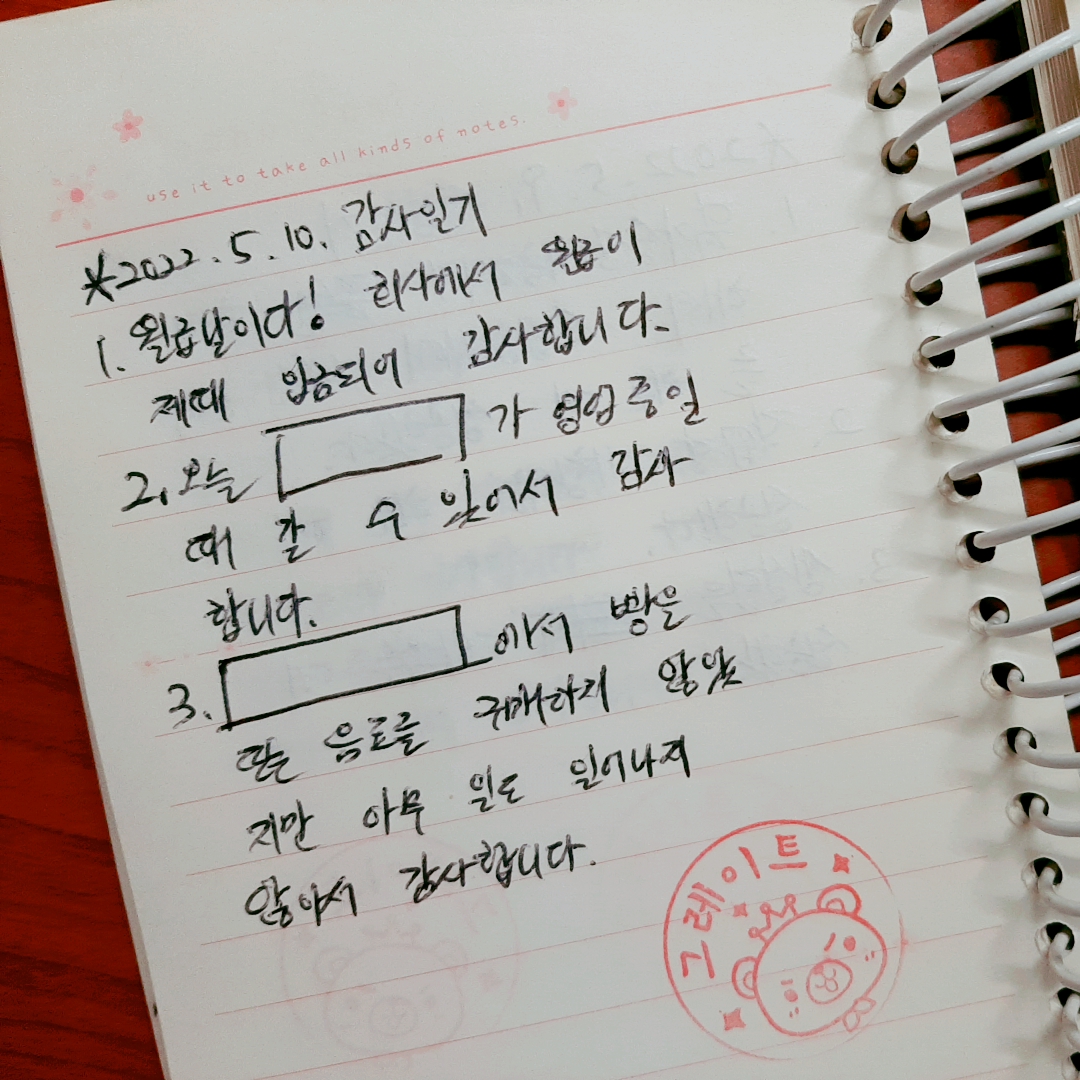 use it to take all kinds of notes.
*2022.5.10. 감사일기
1. 월급날이다! 회사에서 월급이
제때 입금되어 감사합니다.
2. 오늘 가 영업중일
때 갈 수 있어서 감사
합니다.
3. 에서 빵은
또는 음료를 구매하지 않았
지만 아무 일도 일어나지
않아서 감사합니다.
그레이트